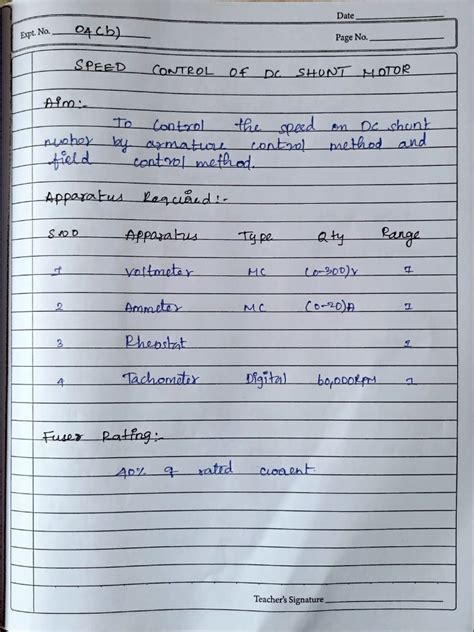 Date
Expt. No. 04(b)
Page No.
SPEED CONTROL OF DC SHUNT MOTOR
Aim:-
To control the speed on DC shunt
motor by armature control method and
field control method.
Apparatus Required:-
S.NO Apparatus Type Qty Range
1 Voltmeter MC (0-300)V 1
2 Ammeter MC (0-20)A 1
3 Rheostat 1
4 Tachometer Digital 60,000RPM 1
Fuser Rating:-
40% of rated current.
Teacher's Signature